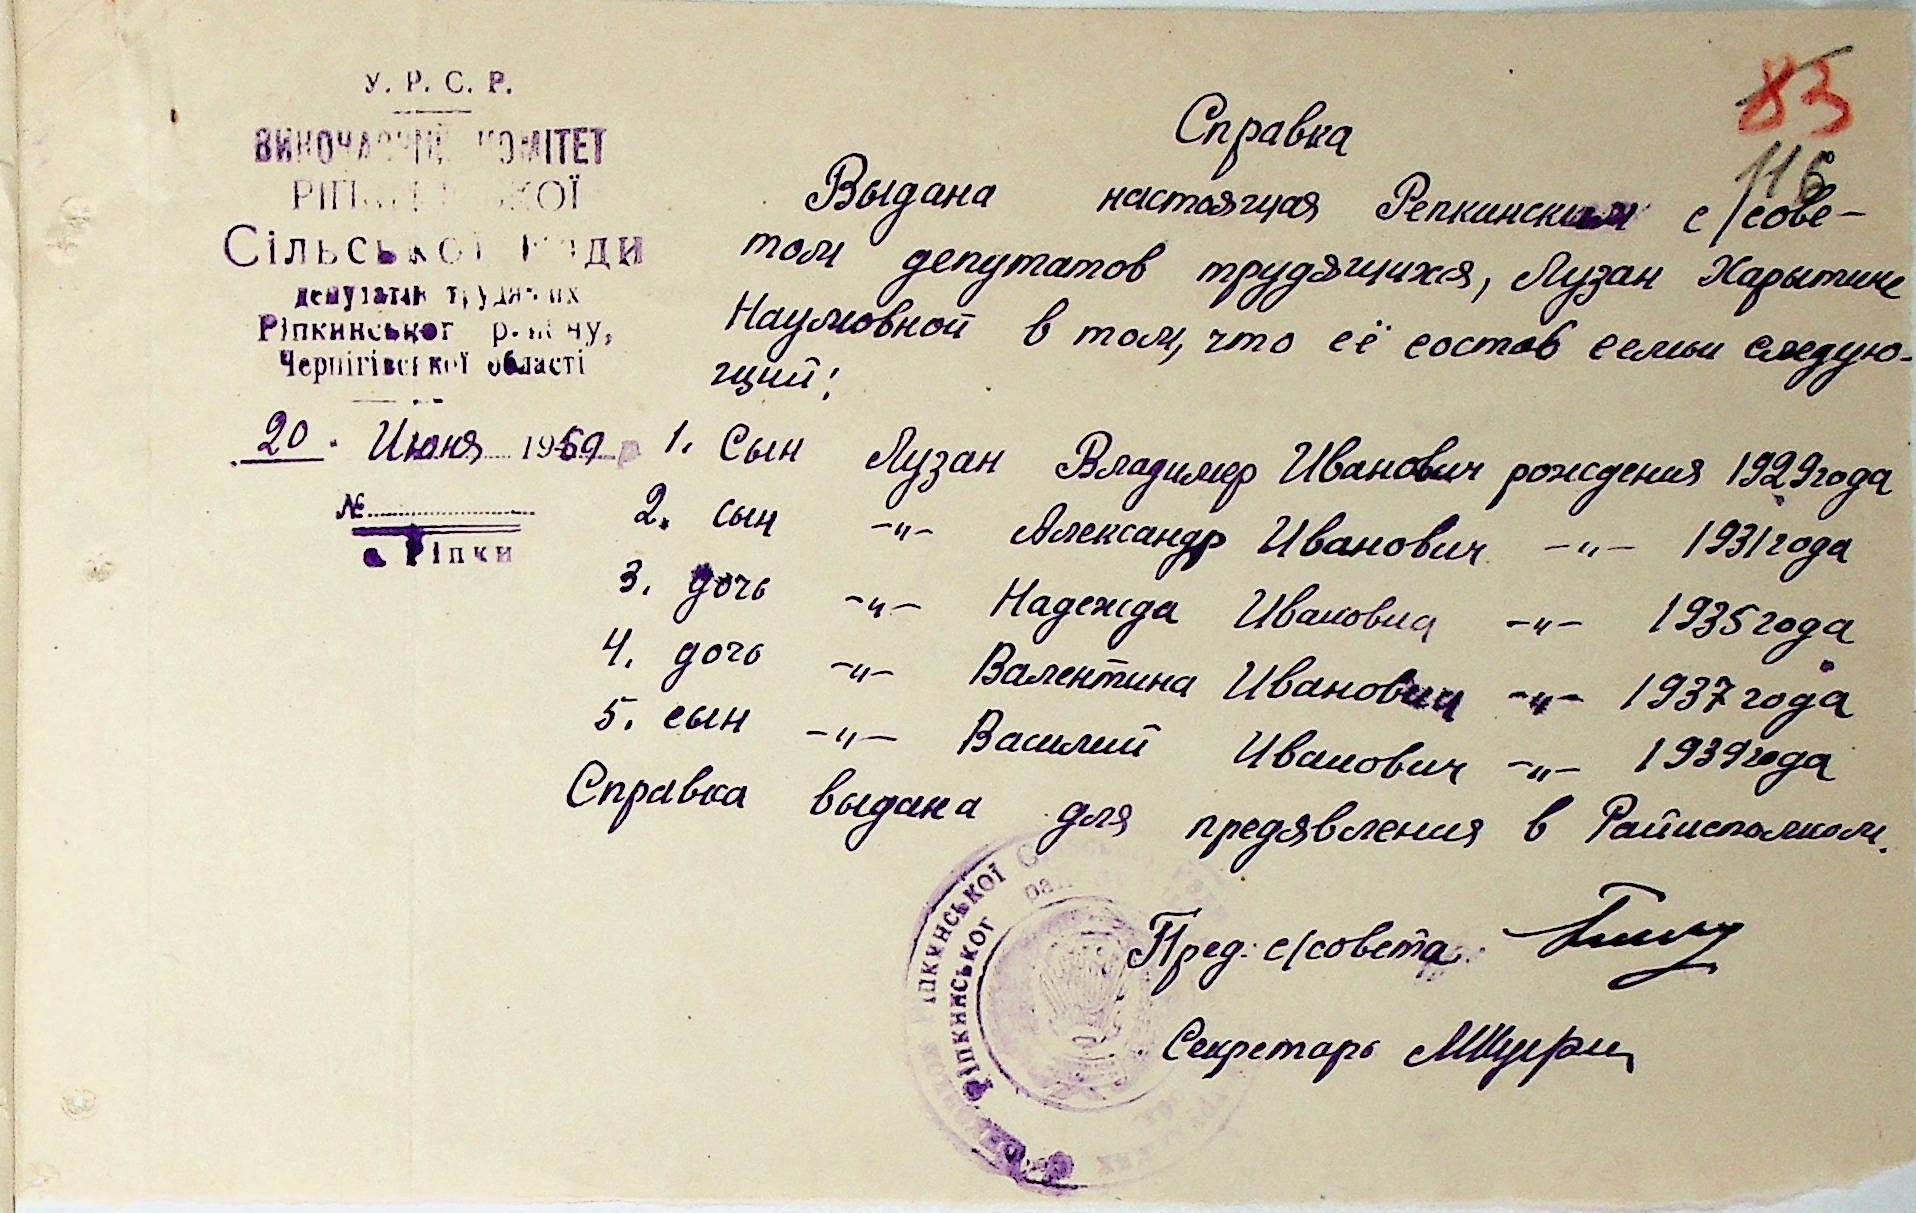 У. Р. С. Р.
ВИКОНАВЧИЙ КОМІТЕТ
РІПКИНСЬКОЇ
Сільської Ради
депутатів трудящих
Ріпкинського району,
Чернігівської області
20 Июня 1969
№
с. Ріпки
83
116
Справка
Выдана настоящая Репкинским с/сове-
том депутатов трудящихся, Лузан Харытине
Наумовной в том, что её состав семьи следую-
щий:
1. Сын Лузан Владимер Иванович рождения 1929 года
2. сын -"- Александр Иванович -"- 1931 года
3. дочь -"- Надежда Ивановна -"- 1935 года
4. дочь -"- Валентина Иванович -"- 1937 года
5. сын -"- Василий Иванович -"- 1939 года
Справка выдана для предявления в Райисполком.
Пред. с/совета
Секретарь
Ріпкинської Сільської
Ріпкинськог